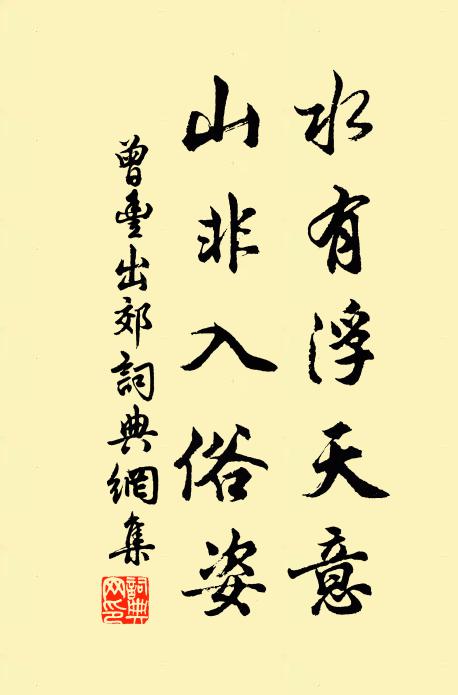 水有浮天意
山非入俗姿
曾豐出郊詞典網集
詞典網印